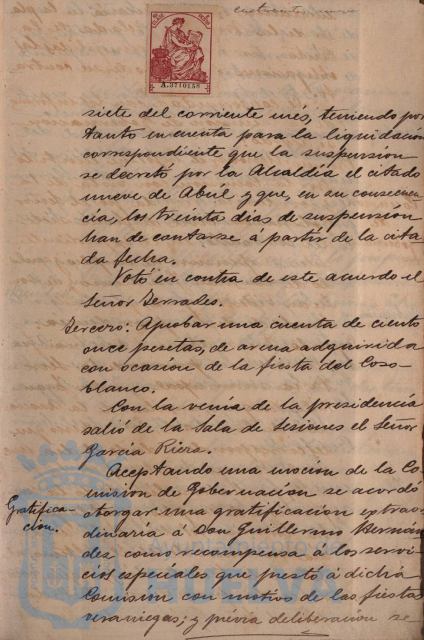 cuarenta y nueve
A.3710158
siete del corriente més, teniendo por
tanto en cuenta para la liquidación
correspondiente que la suspensión
se decretó por la Alcaldía el citado
nueve de Abril y que, en su consecuen-
cia, los treinta dias de suspensión
han de contarse á partir de la cita-
da fecha.
Votó en contra de este acuerdo el
Señor Terrades.
Tercero: Aprobar una cuenta de ciento
once pesetas, de arena adquirida
con ocasión de la fiesta del Coso-
blanco.
Con la venia de la presidencia
salió de la Sala de Sesiones el Señor
García Riera.
Gratifica-
ción.
Aceptando una moción de la Co-
misión de Gobernación se acordó
otorgar una gratificación extraor-
dinaria á Don Guillermo Bernán-
dez como recompensa á los servi-
cios especiales que prestó á dicha
Comisión con motivos de las fiestas
veraniegas; y prévia deliberación se